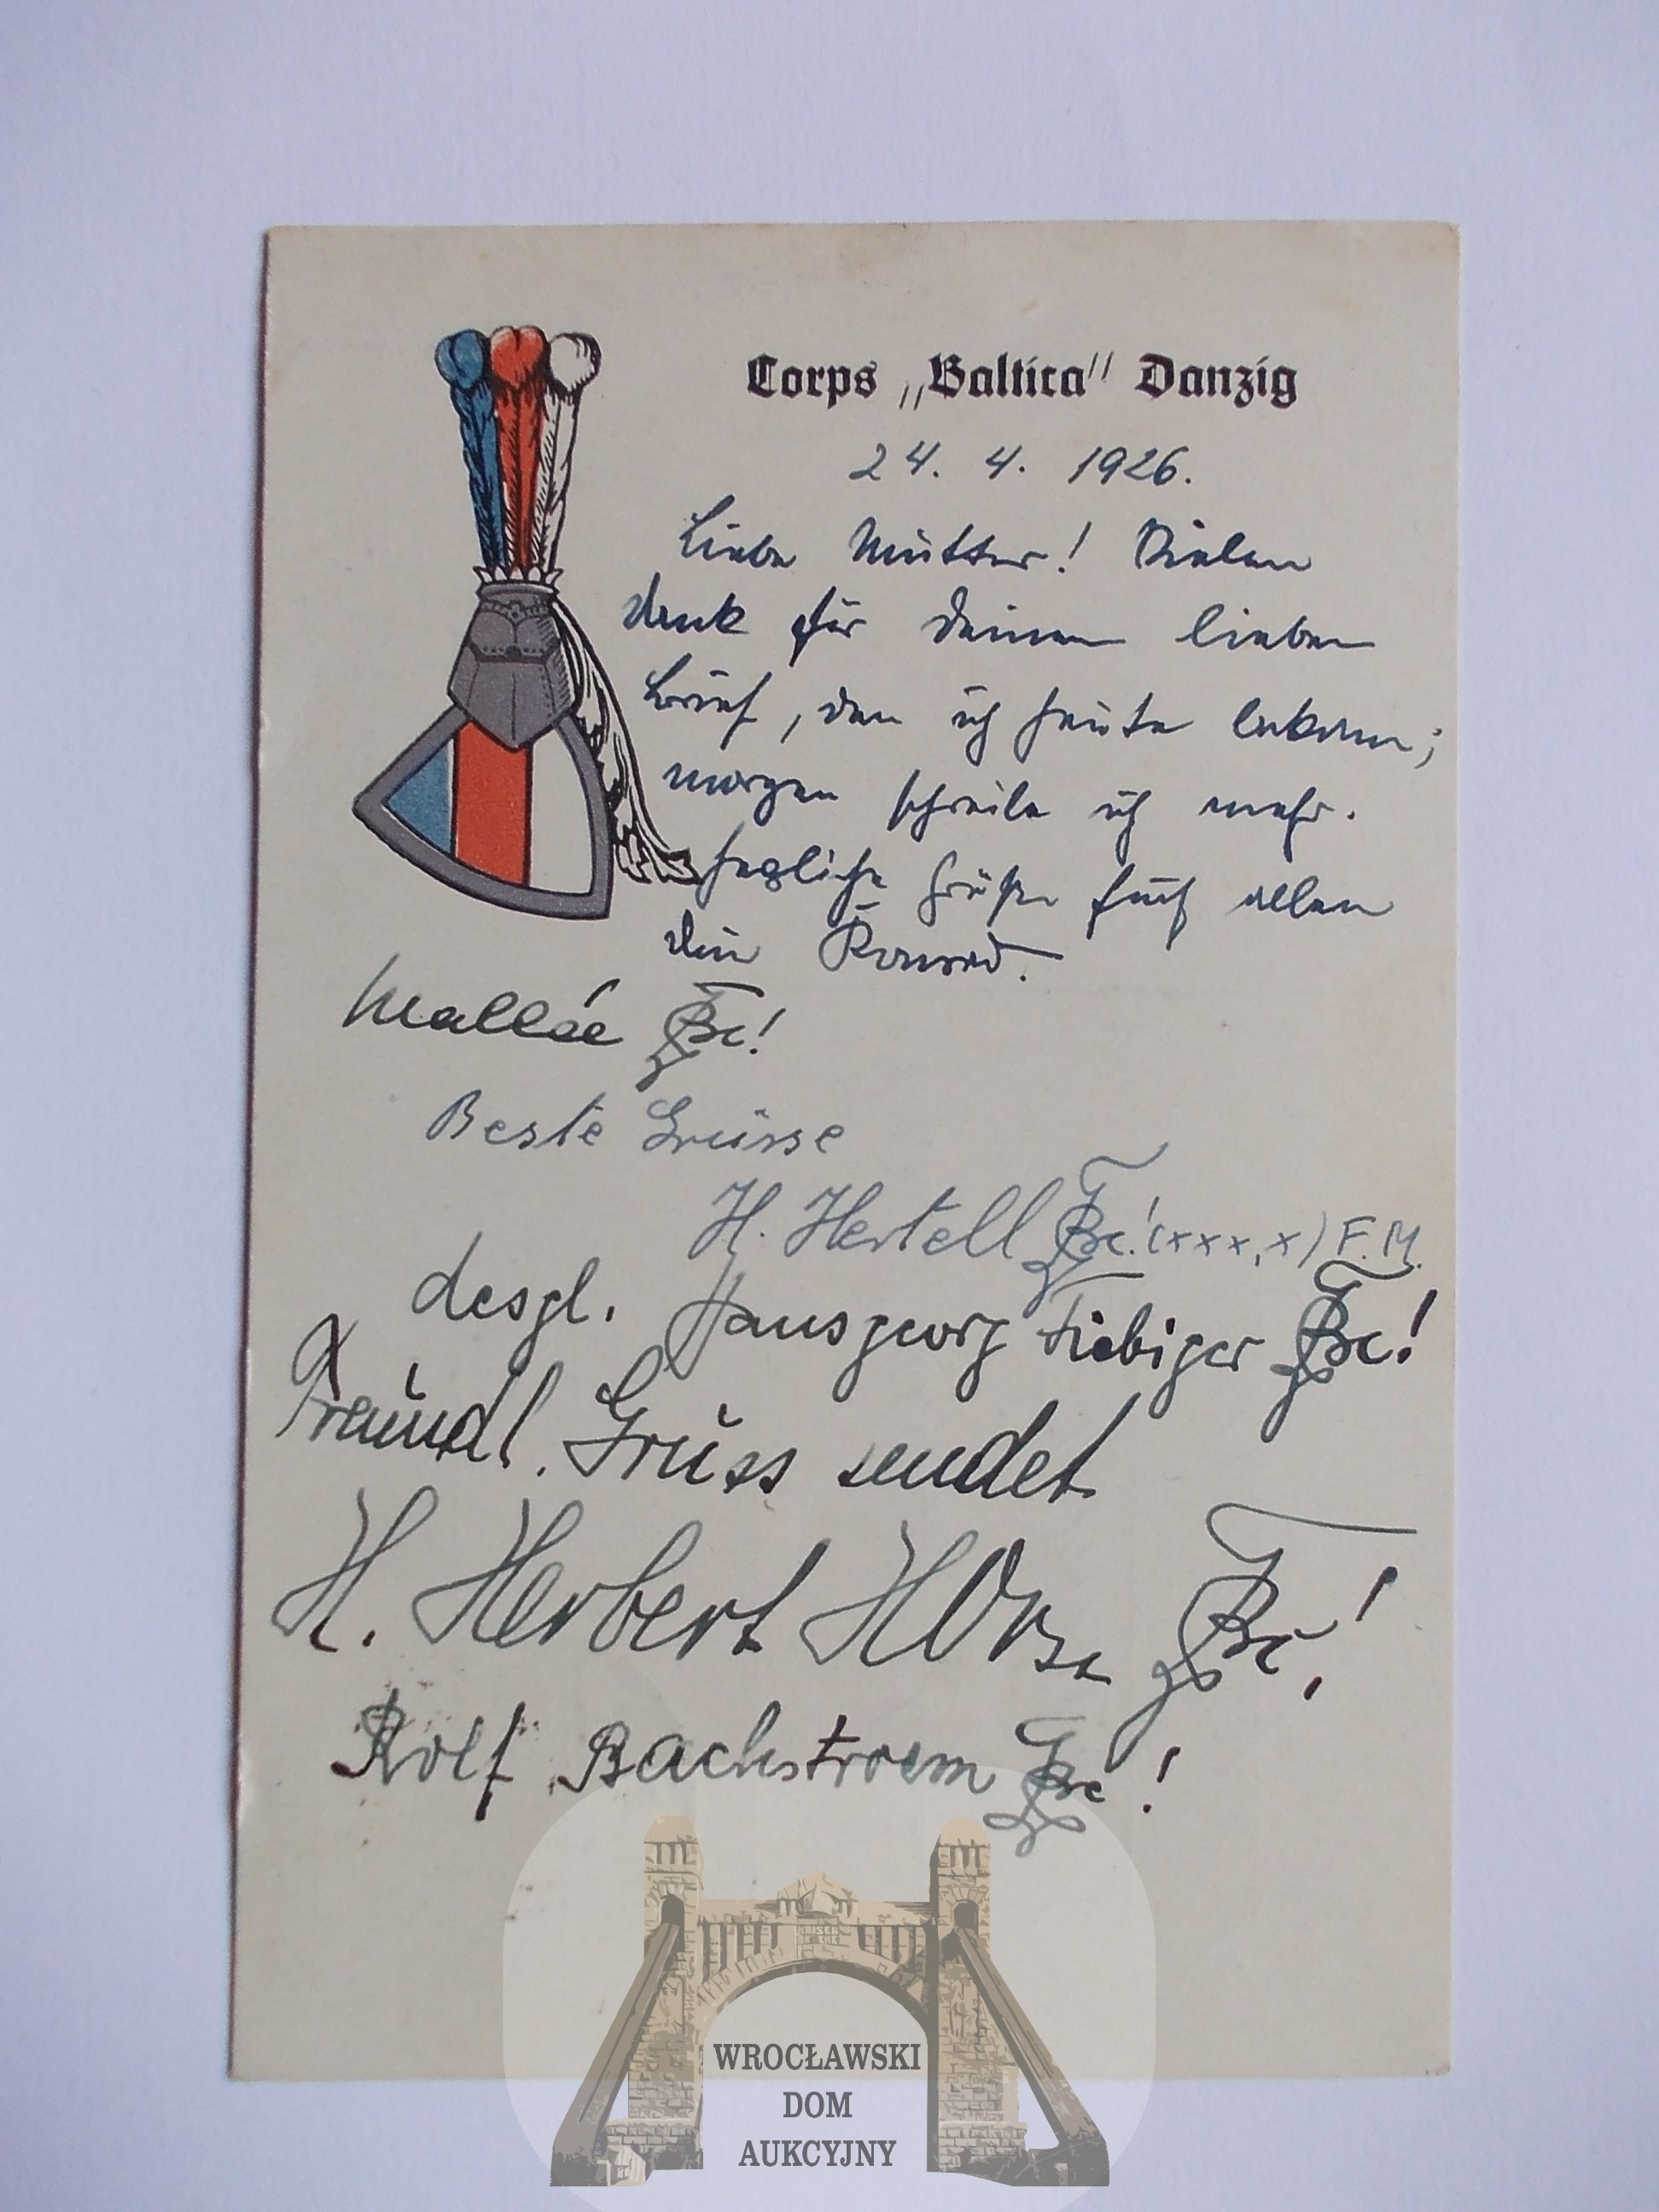 Corps „Baltica" Danzig
24. 4. 1926.
Liebe Mutter! Vielen
Dank für Deinen lieben
Brief, den ich heute bekam;
morgen schreibe ich mehr.
Herzliche Grüße Euch allen
Dein Konrad.
Mallée
Beste Grüsse
H. Hertell (xxx,x) F.M.
desgl. Hansgeorg Fiebiger
Freundl. Gruss sendet
H. Herbert
Rolf Bachstroem
WROCŁAWSKI
DOM
AUKCYJNY